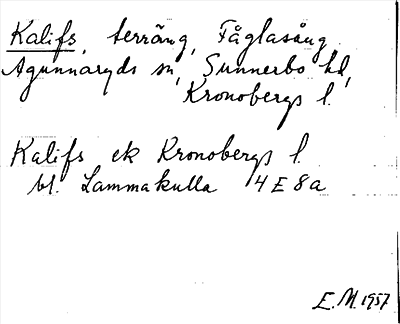 Kalifs, terräng, Fåglasång
Agunnaryds sn, Sunnerbo hd,
Kronobergs l.
Kalifs ek Kronobergs l.
bl. Lammakulla 4 E 8 a
E.M. 1957